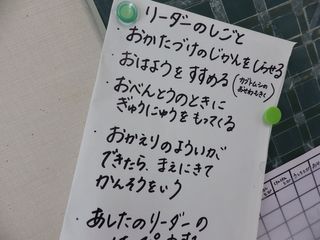 リーダーのしごと
・おかたづけのじかんをしらせる
・おはようをすすめる(カブトムシの
・おべんとうのときに
ぎゅうにゅうをもってくる
・おかえりのよういが
できたら、まえにきて
かんそうをいう
・あしたのリーダーの